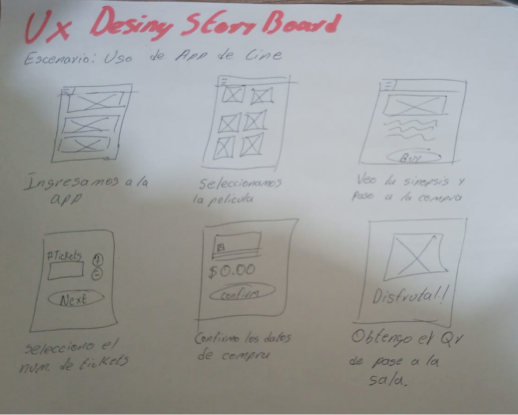 Ux Desing Story Board
Escenario: Uso de App de Cine
Ingresamos a la
app
Seleccionamos
la pelicula
Buy
Veo la sinopsis y
paso a la compra
#Tickets
Next
Selecciono el
num. de tickets
$0.00
Confirm
Confirmo los datos
de compra
Disfruta!!
Obtengo el Qr
de pase a la
sala.